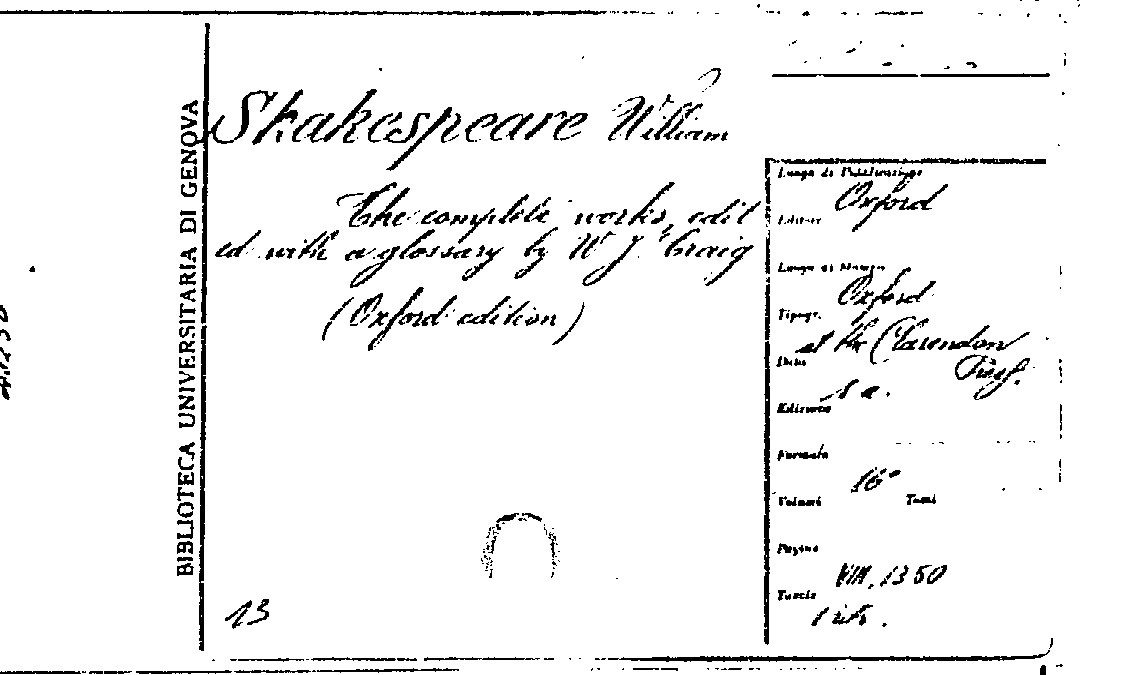 BIBLIOTECA UNIVERSITARIA DI GENOVA
Shakespeare William
The complete works, edit
ed with a glossary by W J Craig
(Oxford edition)
13
Luogo di Pubblicazione
Oxford
Editore
Luogo di Stampa
Oxford
Tipogr.
at the Clarendon
Press.
Data
s a.
Edizione
Formato
16°
Volumi Tomi
Pagine
VIII, 1350
Tavole
1 ritr.